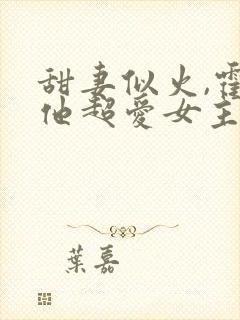 甜妻似火,霍
他超愛女主
葉嘉